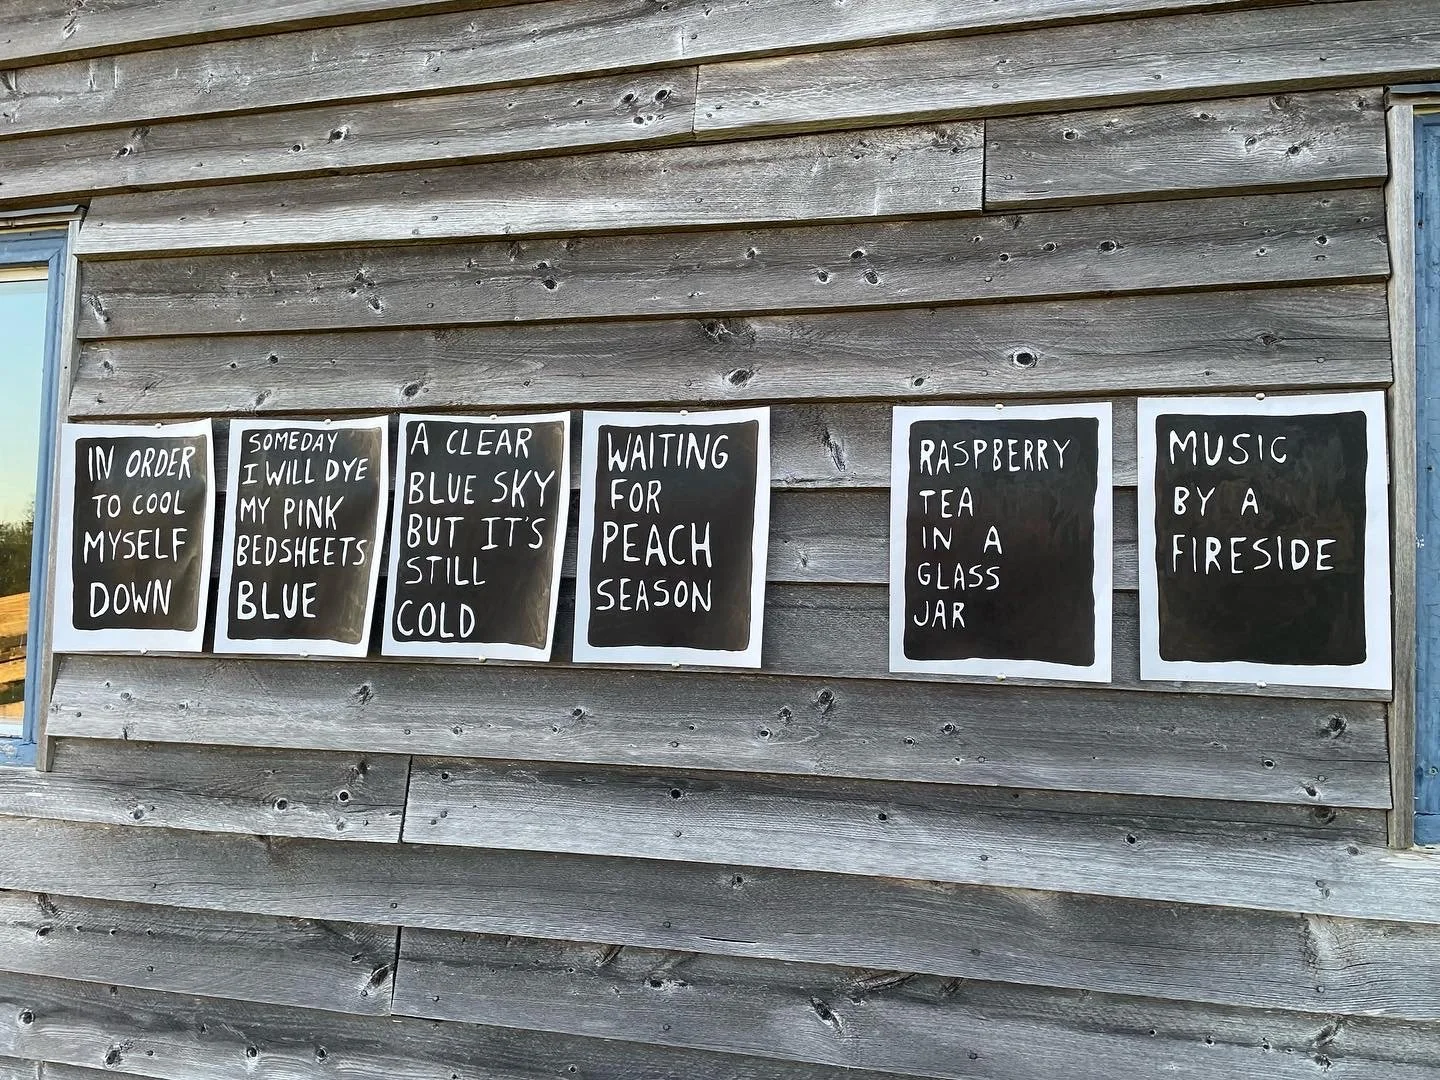 IN ORDER
TO COOL
MYSELF
DOWN
SOMEDAY
I WILL DYE
MY PINK
BEDSHEETS
BLUE
A CLEAR
BLUE SKY
BUT IT'S
STILL
COLD
WAITING
FOR
PEACH
SEASON
RASPBERRY
TEA
IN A
GLASS
JAR
MUSIC
BY A
FIRESIDE